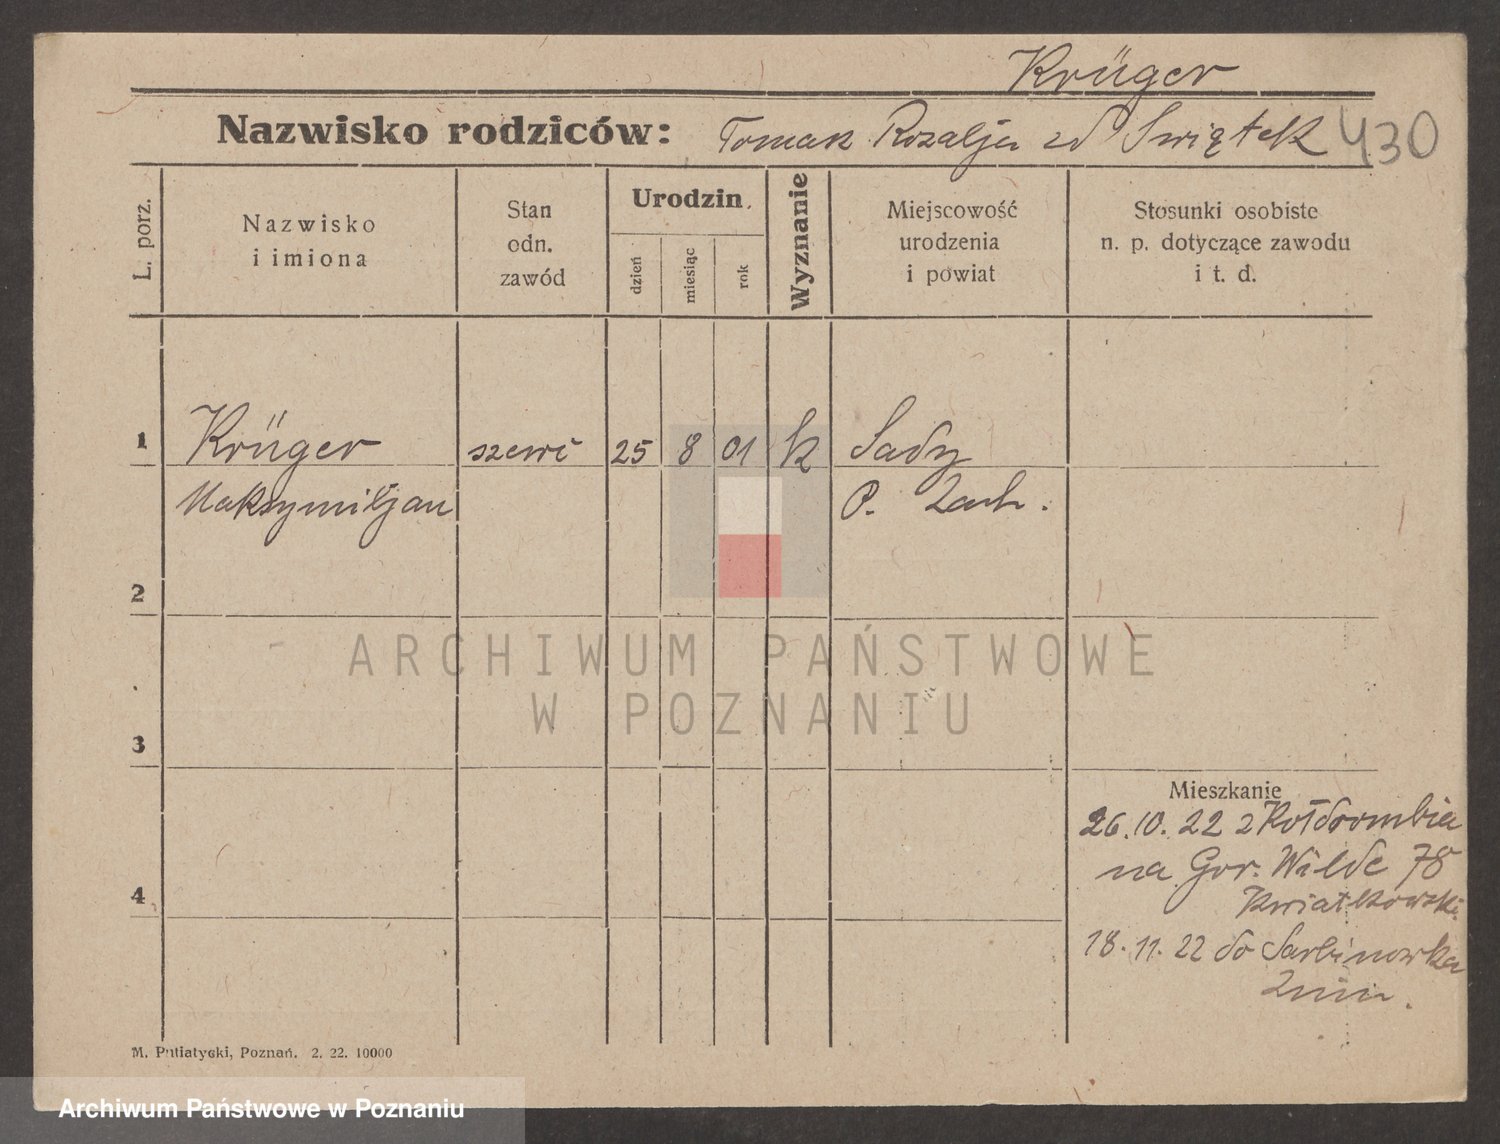 Krüger
Nazwisko rodziców: Tomasz Rozalja zd Swiątek 430
L. porz.
Nazwisko
i imiona
Stan
odn.
zawód
Urodzin
dzień
miesiąc
rok
Wyznanie
Miejscowość
urodzenia
i powiat
Stosunki osobiste
n. p. dotyczące zawodu
i t. d.
1 Krüger szewc 25 8 01 k Sady
Maksymiljan P. Zach.
2
ARCHIWUM PAŃSTWOWE
W POZNANIU
3
Mieszkanie
26.10.22 z Kołdrombia
na Gór. Wilde 78
Kwiatkowski
4
18.11.22 do Sarbinowka
Znin.
M. Putiatycki, Poznań. 2. 22. 10000
Archiwum Państwowe w Poznaniu